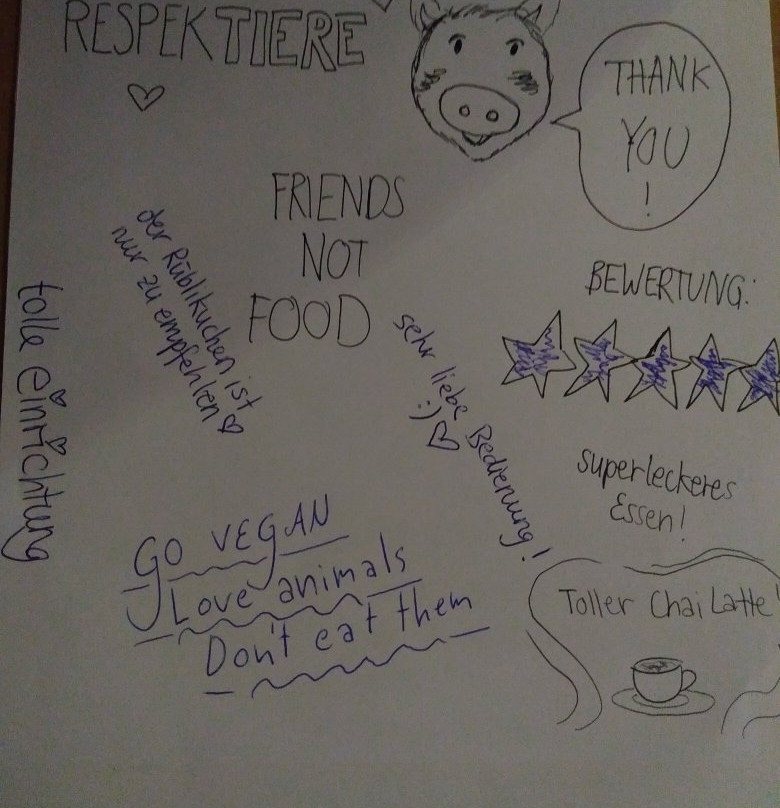 RESPEKTIERE
THANK
YOU
!
FRIENDS
NOT
FOOD
der Rüblikuchen ist
nur zu empfehlen
tolle einrichtung
BEWERTUNG:
sehr liebe Bedienung!
:)
superleckeres
Essen!
GO VEGAN
Love animals
Don't eat them
Toller Chai Latte!